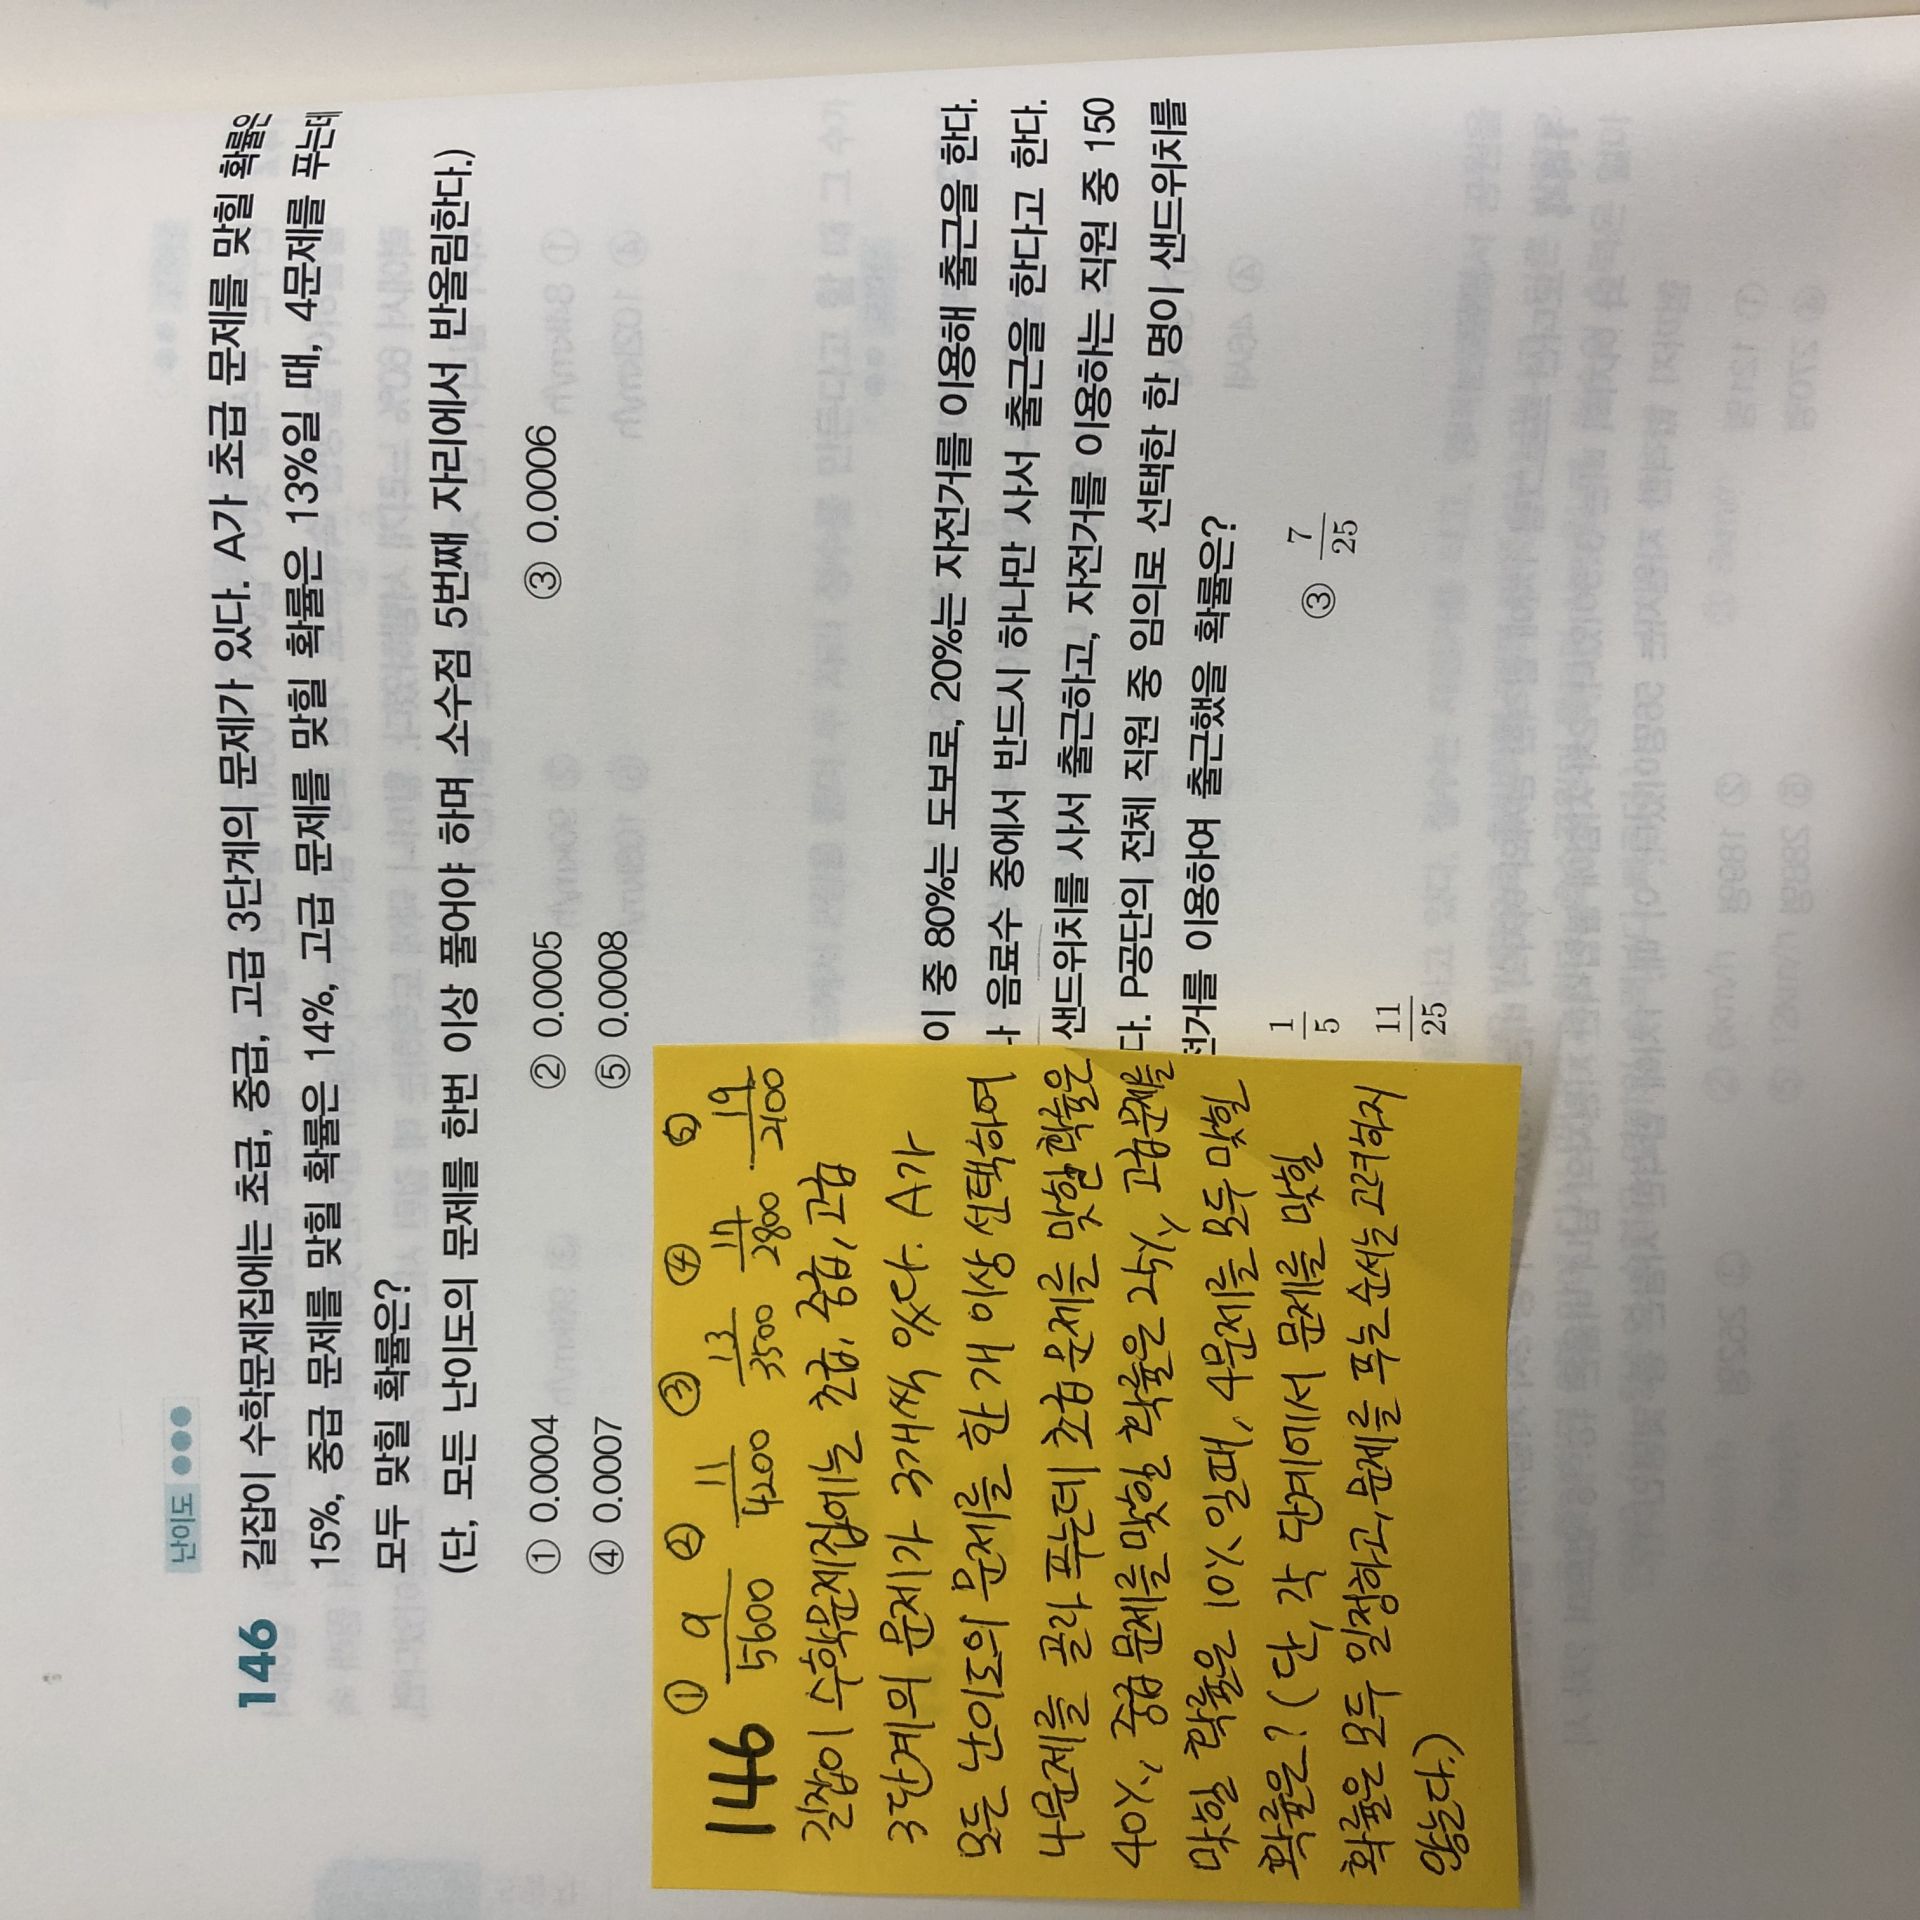 난이도 ●●●
146 길잡이 수학문제집에는 초급, 중급, 고급 3단계의 문제가 있다. A가 초급 문제를 맞힐 확률은
15%, 중급 문제를 맞힐 확률은 14%, 고급 문제를 맞힐 확률은 13%일 때, 4문제를 푸는데
모두 맞힐 확률은?
(단, 모든 난이도의 문제를 한번 이상 풀어야 하며 소수점 5번째 자리에서 반올림한다.)
① 0.0004 ② 0.0005 ③ 0.0006
④ 0.0007 ⑤ 0.0008
146 ① 9/5600 ② 11/4200 ③ 13/3500 ④ 17/2800 ⑤ 19/2100
길잡이 수학문제집에는 초급, 중급, 고급
3단계의 문제가 3개씩 있다. A가
모든 난이도의 문제를 한 개 이상 선택하여
4문제를 골라 푸는데 초급 문제를 맞힐 확률은
40%, 중급 문제를 맞힐 확률은 25%, 고급 문제를
맞힐 확률은 10%일때, 4문제를 모두 맞힐
확률은? (단, 각 단계에서 문제를 맞힐
확률은 모두 일정하고, 문제를 푸는 순서는 고려하지
않는다.)
이 중 80%는 도보로, 20%는 자전거를 이용해 출근을 한다.
음료수 중에서 반드시 하나만 사서 출근을 한다고 한다.
샌드위치를 사서 출근하고, 자전거를 이용하는 직원 중 150
다. P공단의 전체 직원 중 임의로 선택한 한 명이 샌드위치를
전거를 이용하여 출근했을 확률은?
1/5 ③ 7/25
11/25